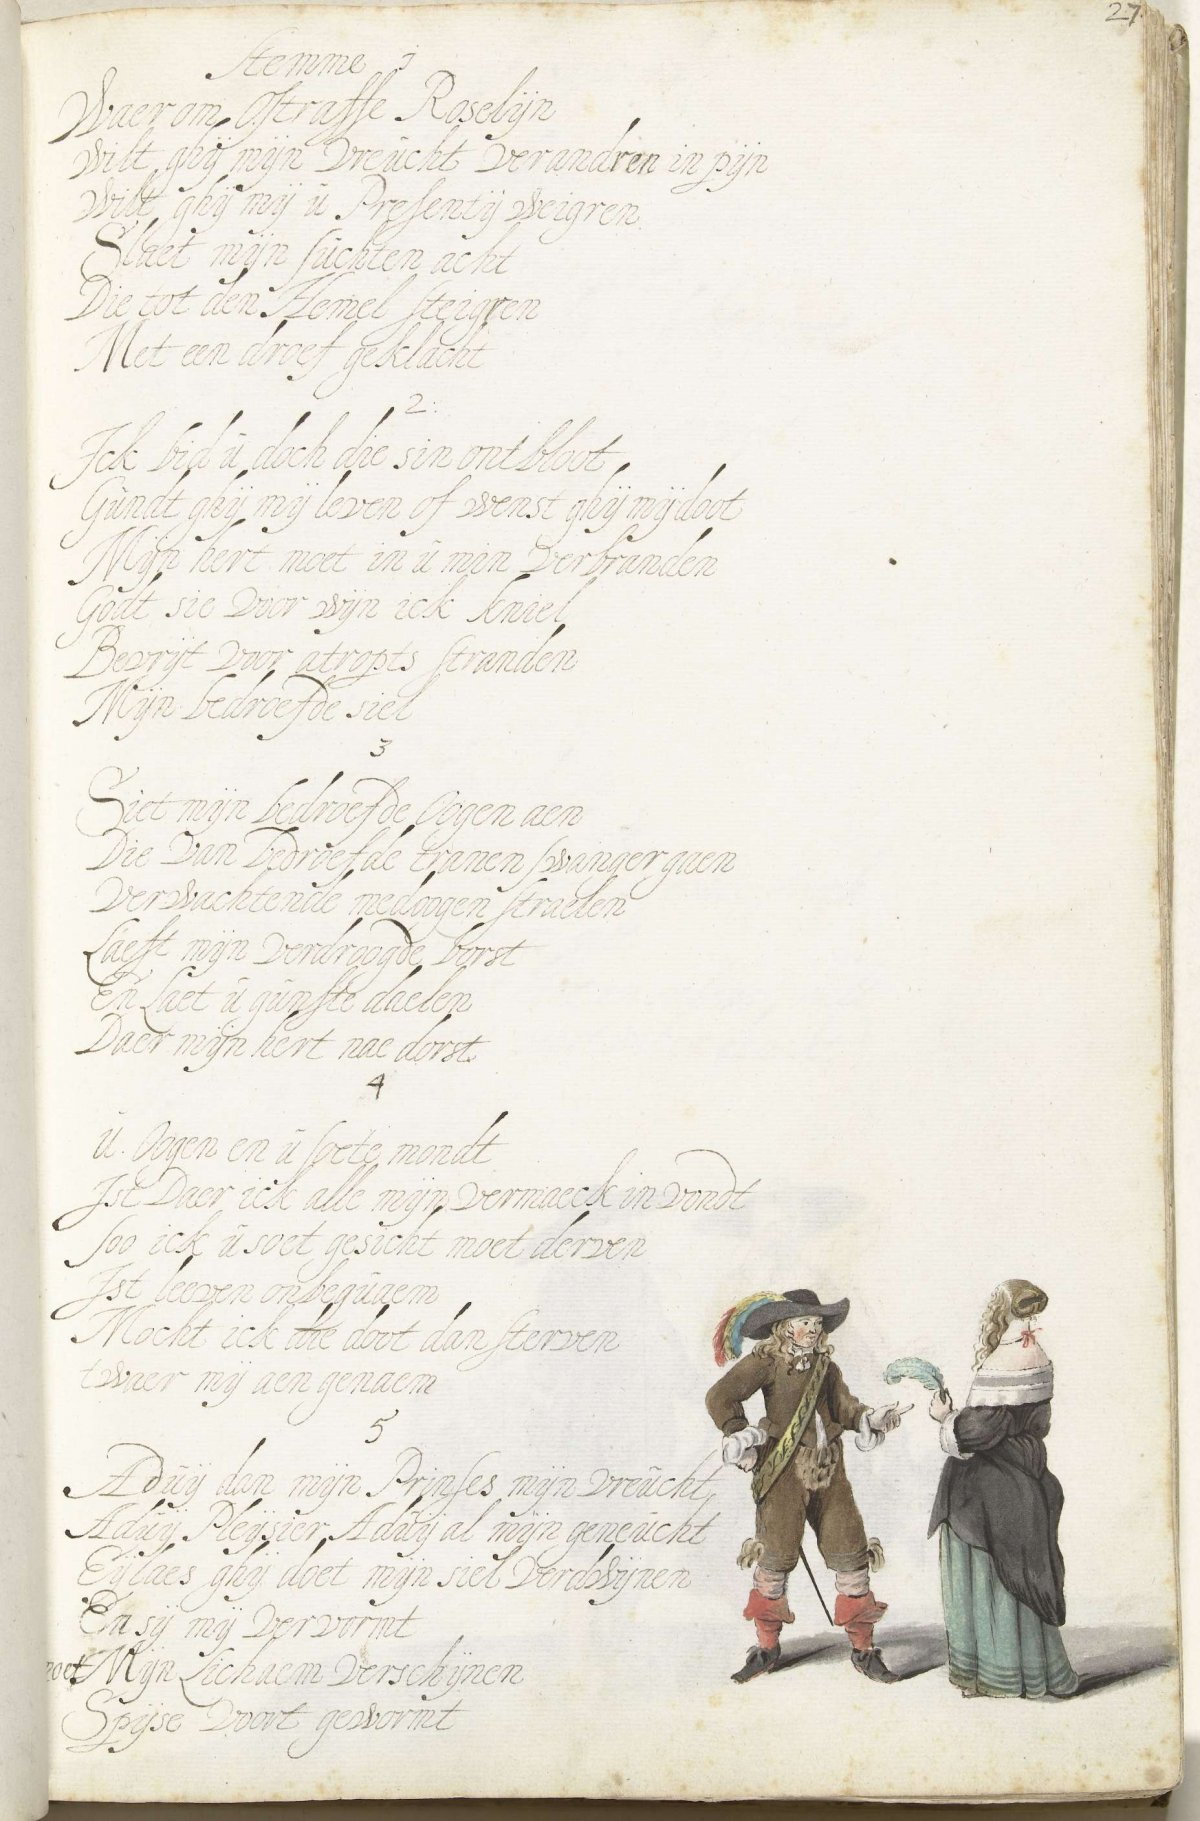 27
Stemme 1
Waerom Ostrasse Roselijn
Wilt ghij mijn vreucht verandren in pijn
Wilt ghij mij ŭ Presentij weigren
Slaet mijn suchten acht
Die tot den Hemel steigren
Met een droef geklacht
2:
Ick bid ŭ doch die sin ontbloot
Gŭndt ghij mij leven of wenst ghij mij doot
Mijn hert moet in ŭ min verbranden
Godt sie voor wijn ick kniel
Bevrijt voor atropts stranden
Mijn bedroefde siel
3
Siet mijn bedroefde Oogen aen
Die van bedroefde tranen swanger gaen
Verwachtende medoogen straelen
Laefst mijn verdroogde borst
En Laet ŭ gŭnste daelen
Daer mijn hert nae dorst
4
ŭ. Oogen en ŭ soete mondt
Ist Daer ick alle mijn vermaeck in vondt
Soo ick ŭ soet gesicht moet derven
Ist leeven onbequaem
Mocht ick doot dan sterven
t waer mij aen genaem
5
Adŭij dan mijn Prinses mijn vreŭcht
Adŭij Pleijsier Adŭij al mijn geneŭcht
Eijlaes ghij doet mijn siel verdwijnen
En sij mij vervormt
moet Mijn Lichaem verschijnen
Spijse voort gewormt